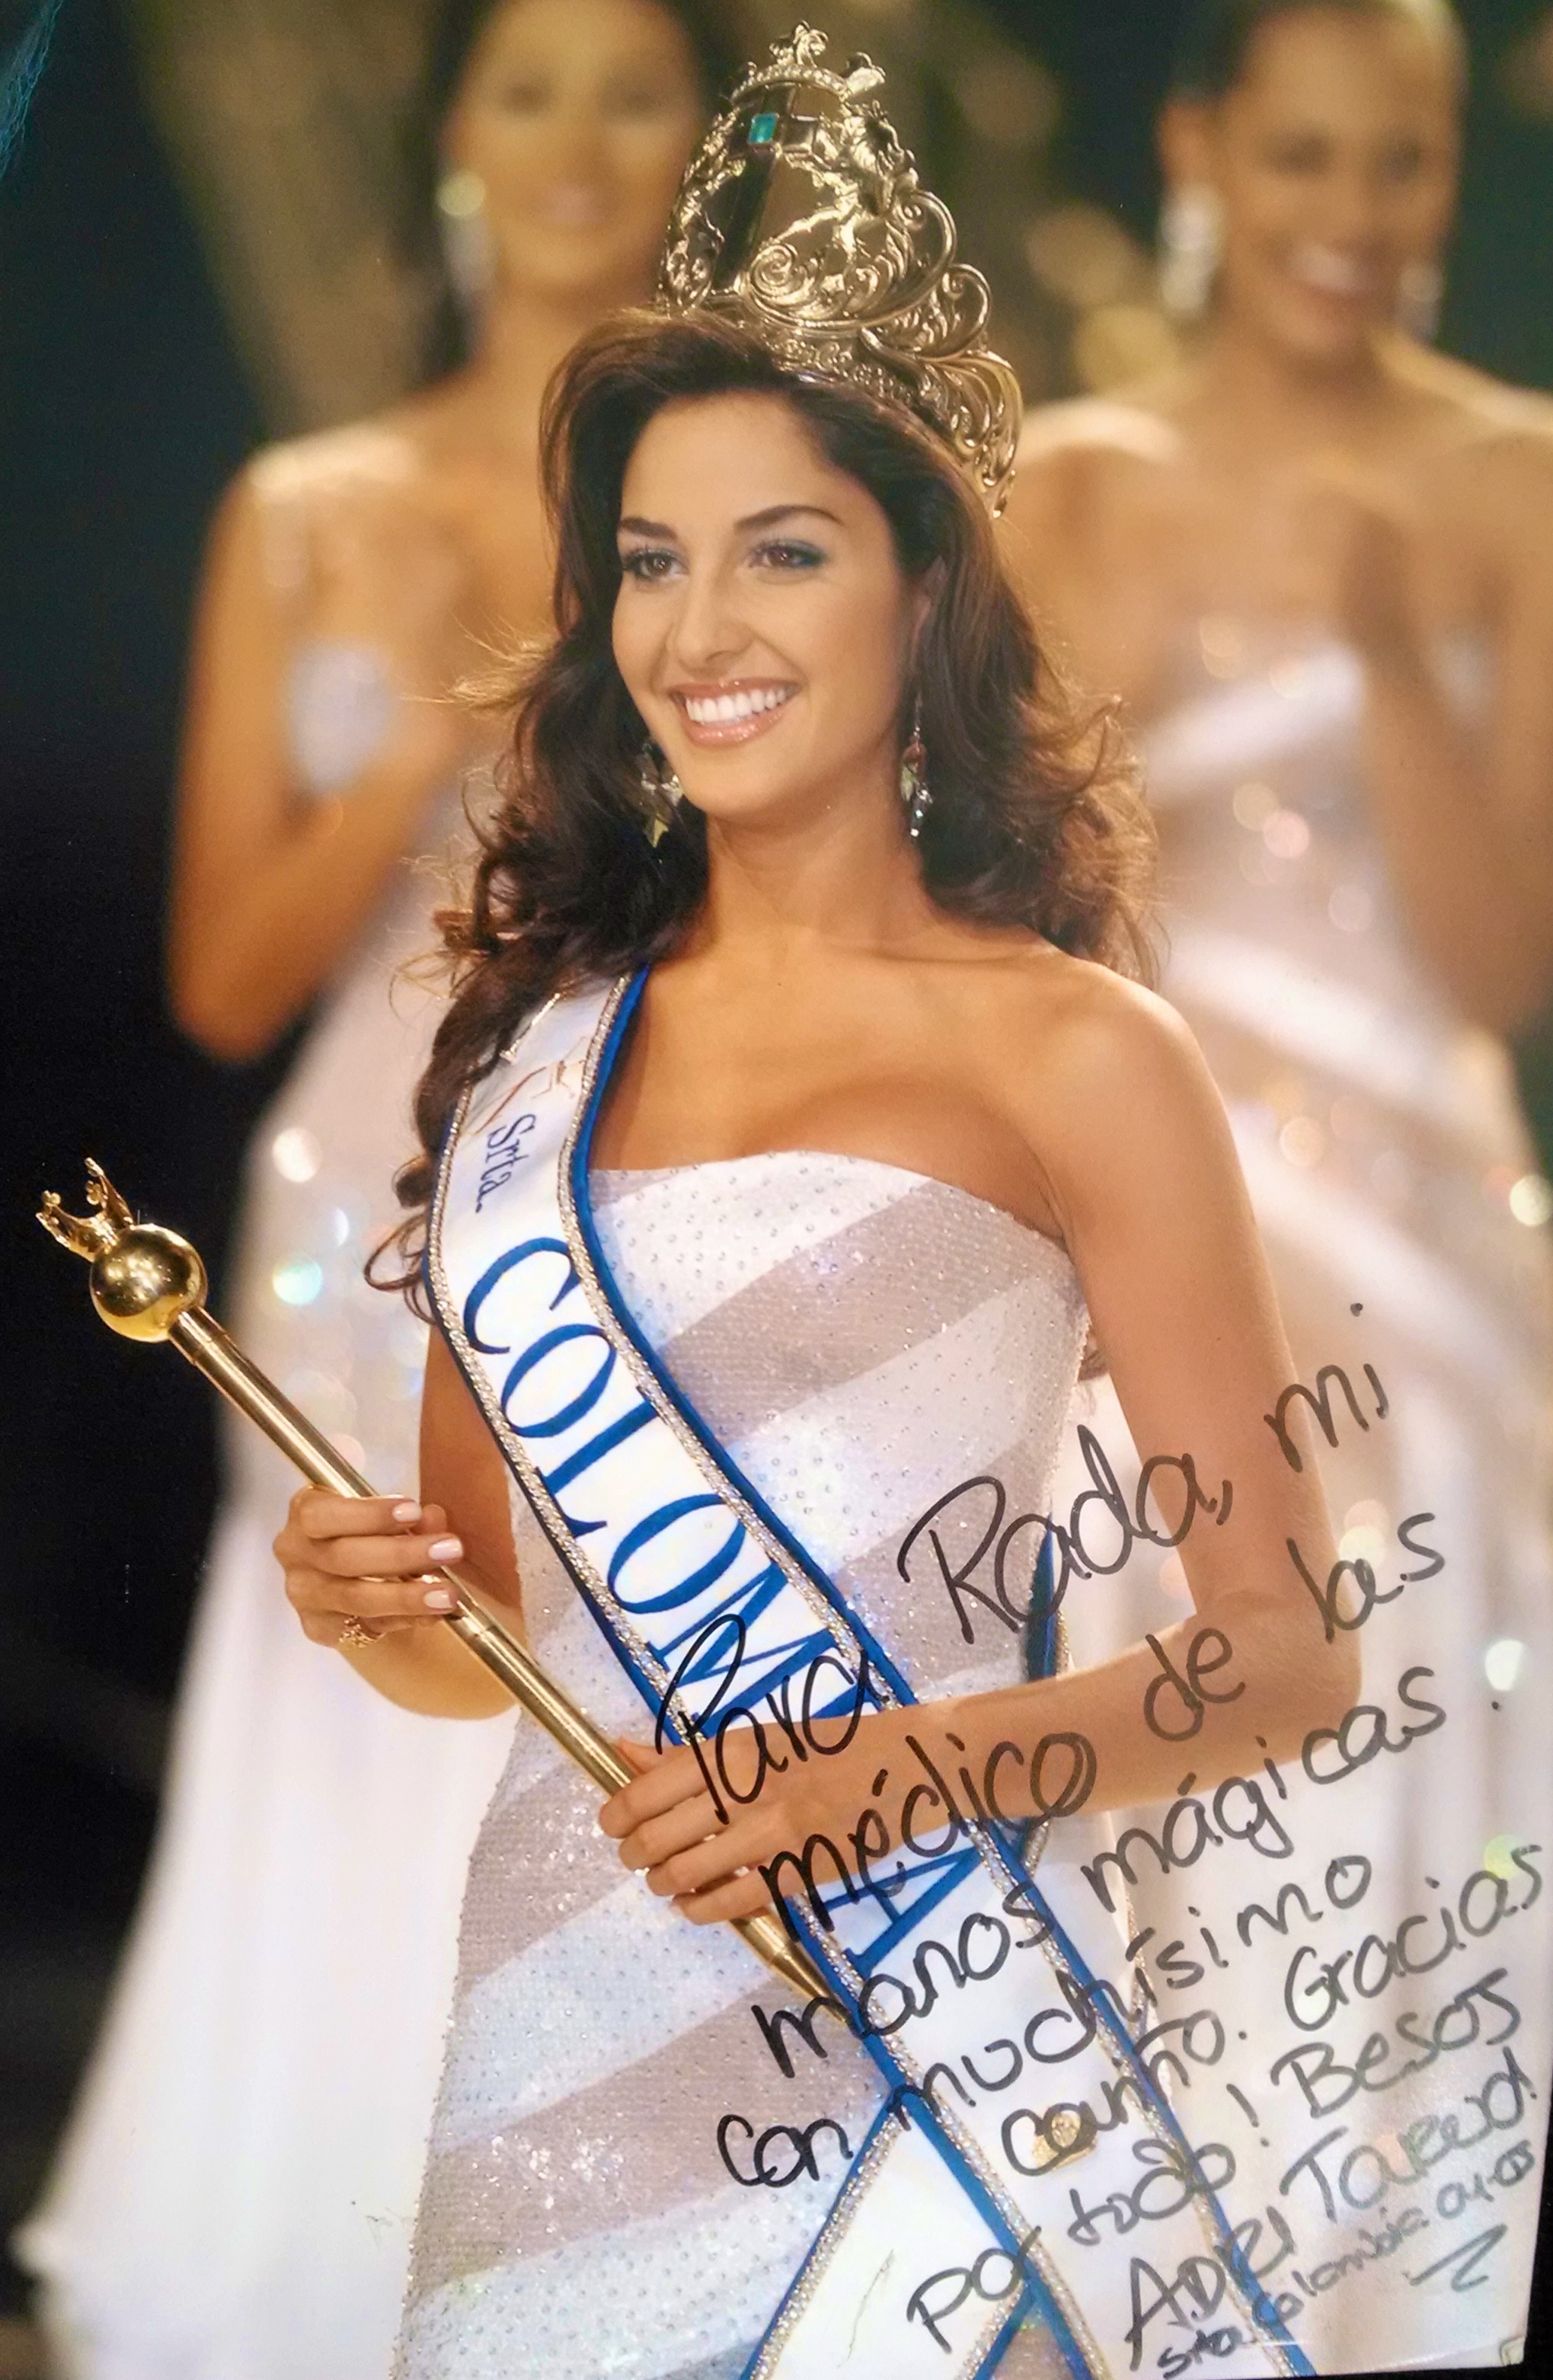 Srta.
COLOM A
Para Rada, mi
médico de las
manos mágicas.
Con muchísimo
cariño. Gracias
por todo! Besos
ADRI
Srta Colombia 04-05